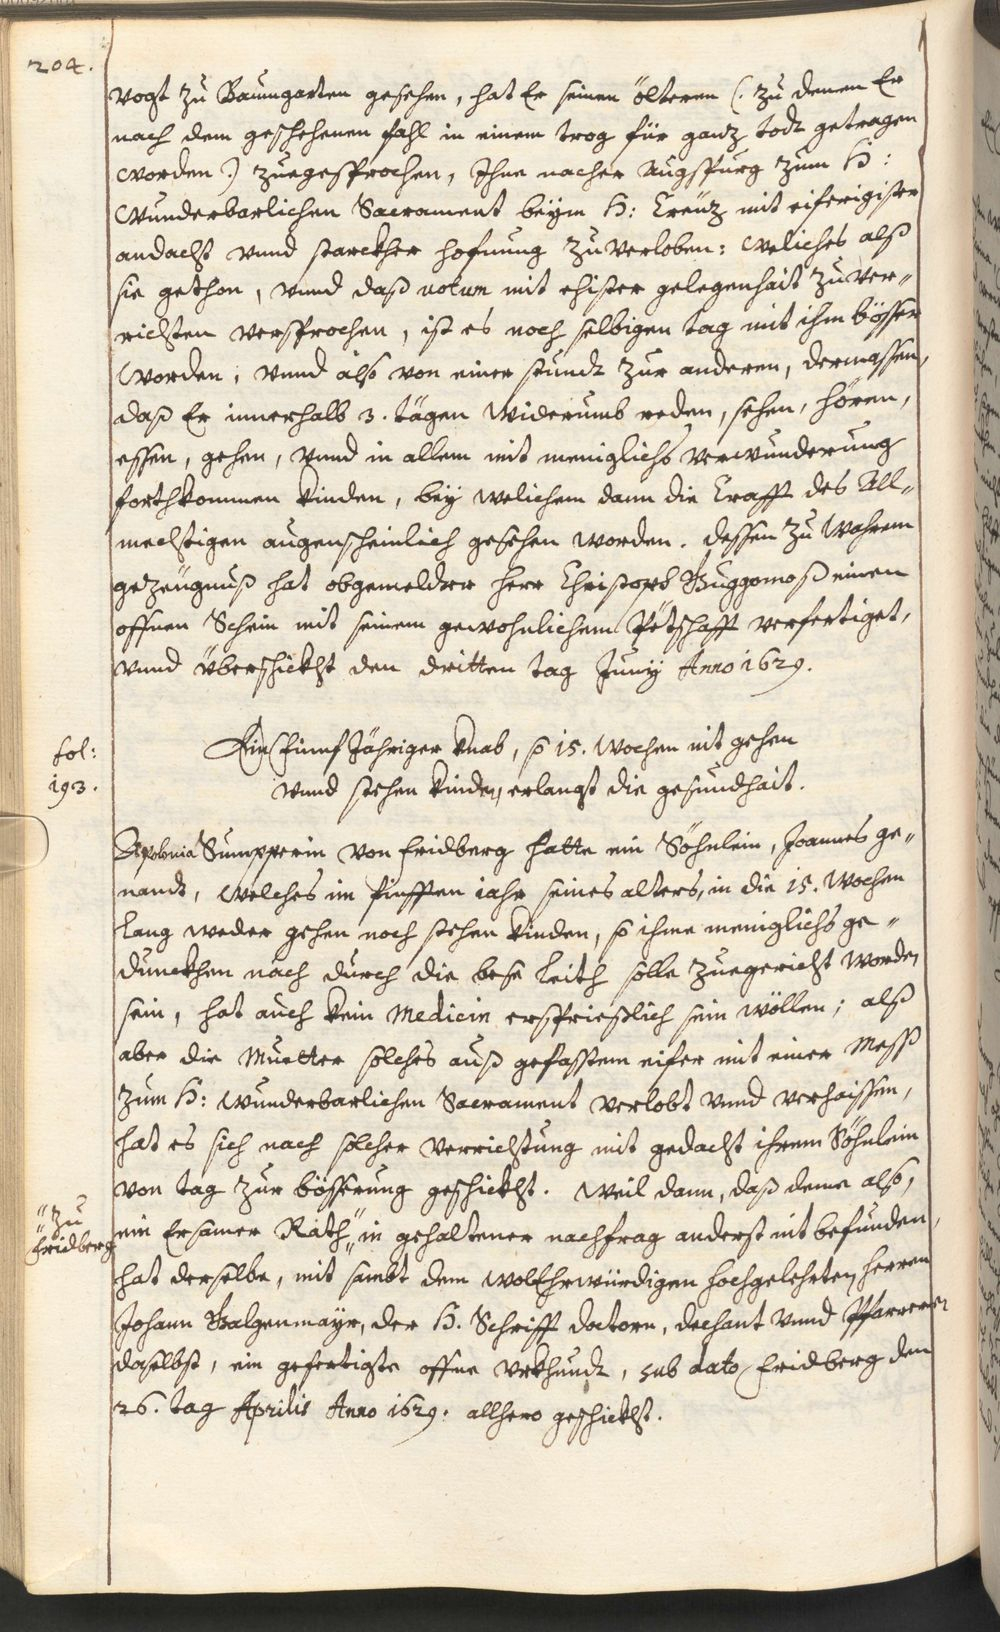 204.
Vogt zu Baumgarten gesehen, hat Er seinen ölteren (: zu denen Er
nach dem geschehenen fahl in einem trog für ganz todt getragen
worden :) zuegesprochen, Ihne nacher Augspurg zum H:
Wunderbarlichen Sacrament beÿm H: Creüz mit eiferigister
andacht vnnd starckher hofnung zuuerloben: Weliches alß
sie gethon, vnnd daß votum mit ehister gelegenhait zuuer„
richten versprochen, ist es noch selbigen tag mit ihm bösser
worden, vnnd also von einer stundt zur anderen, dermassen,
daß Er innerhalb 3. tägen widerumb reden, sehen, hören,
essen, gehen, vnnd in allem mit meniglichs verwunderung
forthkommen kinden, beÿ welichem dann die Crafft des All„
mechtigen augenscheinlich gesehen worden. dessen zu wahrem
gezeügnuß hat obgemeldter herr Christoph Guggomoß einen
offnen Schein mit seinem gewohnlichem Petschafft verfertiget,
vnnd überschickht den dritten tag Junÿ Anno 1629.
fol:
193.
Ein Fünnf Jähriger knab, so 15. Wochen nit gehen
vnnd stehen kinden, erlangt die gesundhait.
Apolonia Sumpperin von Fridberg hatte ein Söhnlein, Joannes ge„
nandt, welches im finfften iahr seines alters, in die 15. Wochen
lang weder gehen noch stehen kinden, so ihme meniglichs ge„
dunckhen nach durch die bese leith solle zuegericht worden
sein, hat auch kein Medicin ersprießlich sein wöllen; alß
aber die Muetter solches auß gefasstem eifer mit einer Mess
zum H: Wunderbarlichen Sacrament verlobt vnnd verhaissen,
hat es sich nach solcher verrichtung mit gedacht ihrem Söhnlein
von tag zur bösserung geschickht. Weil dann, daß deme also,
„ zu
„ Fridberg
ein Ersamer Rath „ in gehaltener nachfrag anderst nit befunden,
hat derselbe, mit sambt dem wolEhrwürdigen hochgelehrten herren
Johann Balgenmayr, der H. Schrifft doctorn, dechant vnnd Pfarrerer
daselbst, ein gefertigte offne vrkhundt, sub dato Fridberg den
26. tag Aprilis Anno 1629. allhero geschickht.